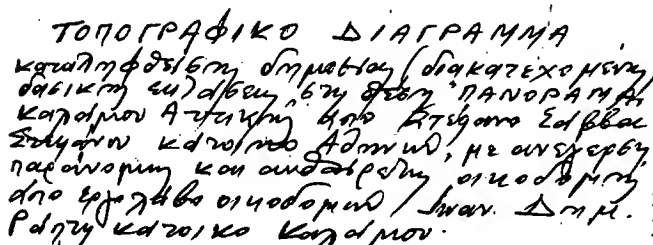 ΤΟΠΟΓΡΑΦΙΚΟ ΔΙΑΓΡΑΜΜΑ
καταληφθείσης δημοσίας (διακατεχομένης
δασικής εκτάσεως στη θέση "ΠΑΝΟΡΑΜΑ"
Καλάμου Αττικής από Στέφανο Σάββα
κατοικο Αθηνών, με ανεγερση
παράνομης και αυθαίρετης οικοδομής
από εργολάβο οικοδομών Ιωαν. Δημ.
Ράπτη κάτοικο Καλάμου.